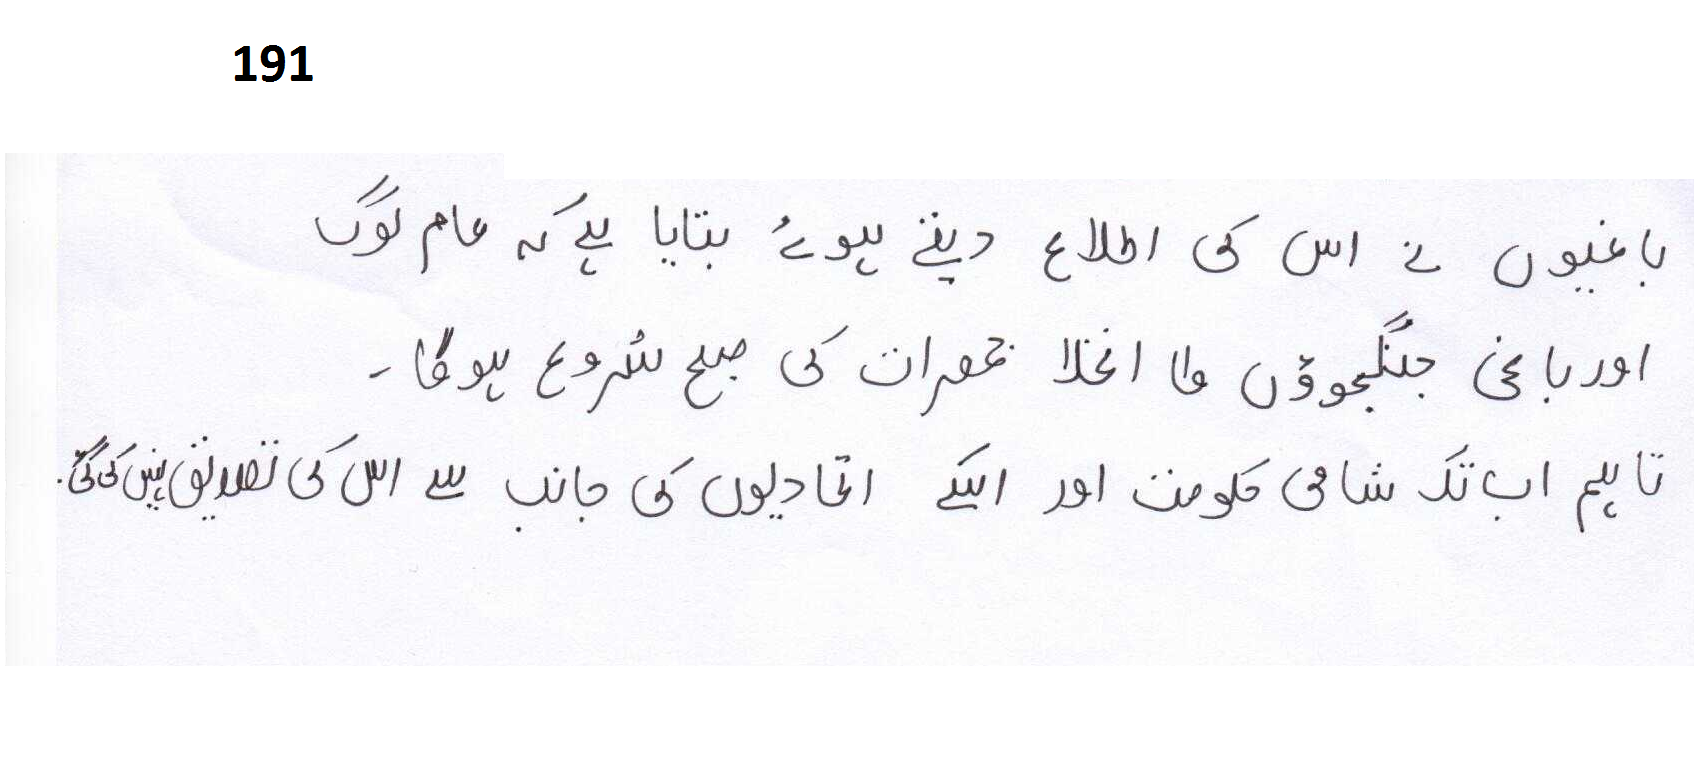 191
باغیوں نے اس کی اطلاع دیتے ہوئے بتایا ہے کہ عام لوگ
اور باغی جنگجوؤں کا انخلا جمعرات کی صبح شروع ہوگا۔
تاہم اب تک شامی حکومت اور اسکے اتحادیوں کی جانب سے اس کی تصدیق نہیں کی گئی.